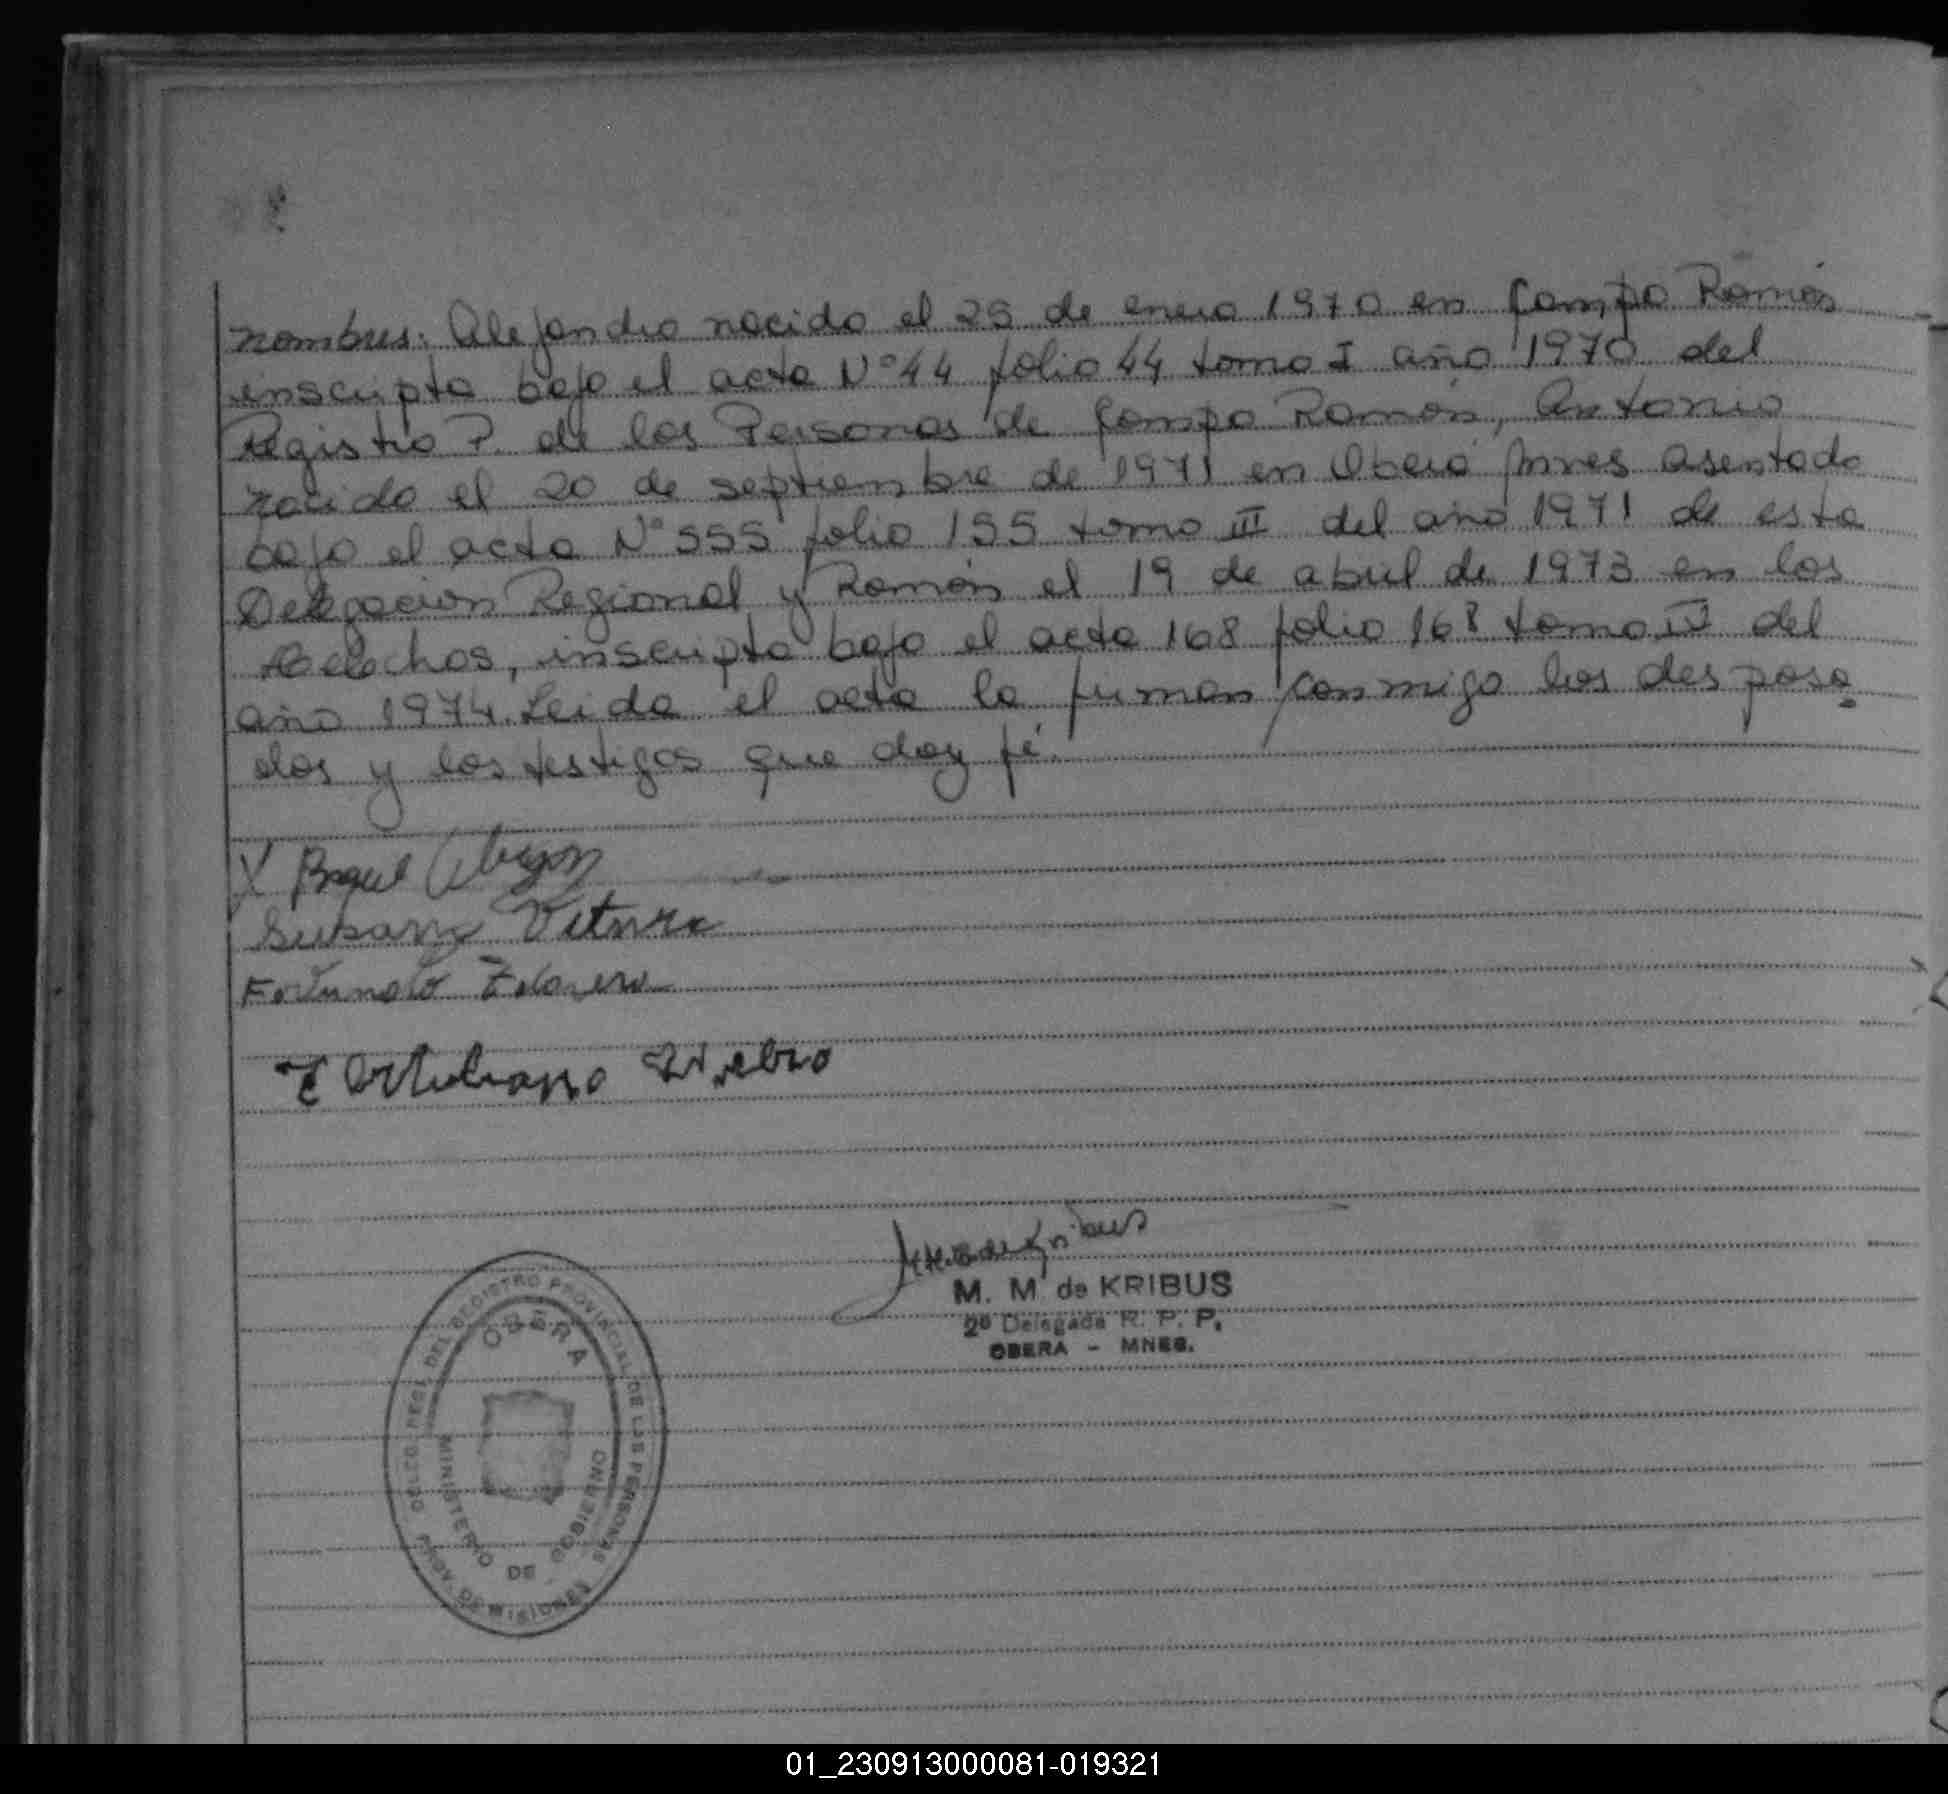 nombres: Alejandro nacido el 25 de enero 1970 en Campo Ramón
inscripto bajo el acta Nº 44 folio 44 tomo I año 1970 del
Registro P. de las Personas de Campo Ramón, Antonio
nacido el 20 de septiembre de 1971 en Oberá Mnes asentado
bajo el acta Nº 555 folio 155 tomo III del año 1971 de esta
Delegacion Regional y Ramón el 19 de abril de 1973 en los
Helechos, inscripto bajo el acta 168 folio 168 tomo IV del
año 1974. Leida el acta la firman conmigo los desposa
dos y los testigos que doy fé.
X
Susana
Fortunato
M. M. de KRIBUS
2º Delegada R. P. P.
OBERA - MNES.
DELEG. REGI. DEL REGISTRO PROVINCIAL DE LAS PERSONAS
OBERA
MINISTERIO DE GOBIERNO
PROV. DE MISIONES
01_230913000081-019321